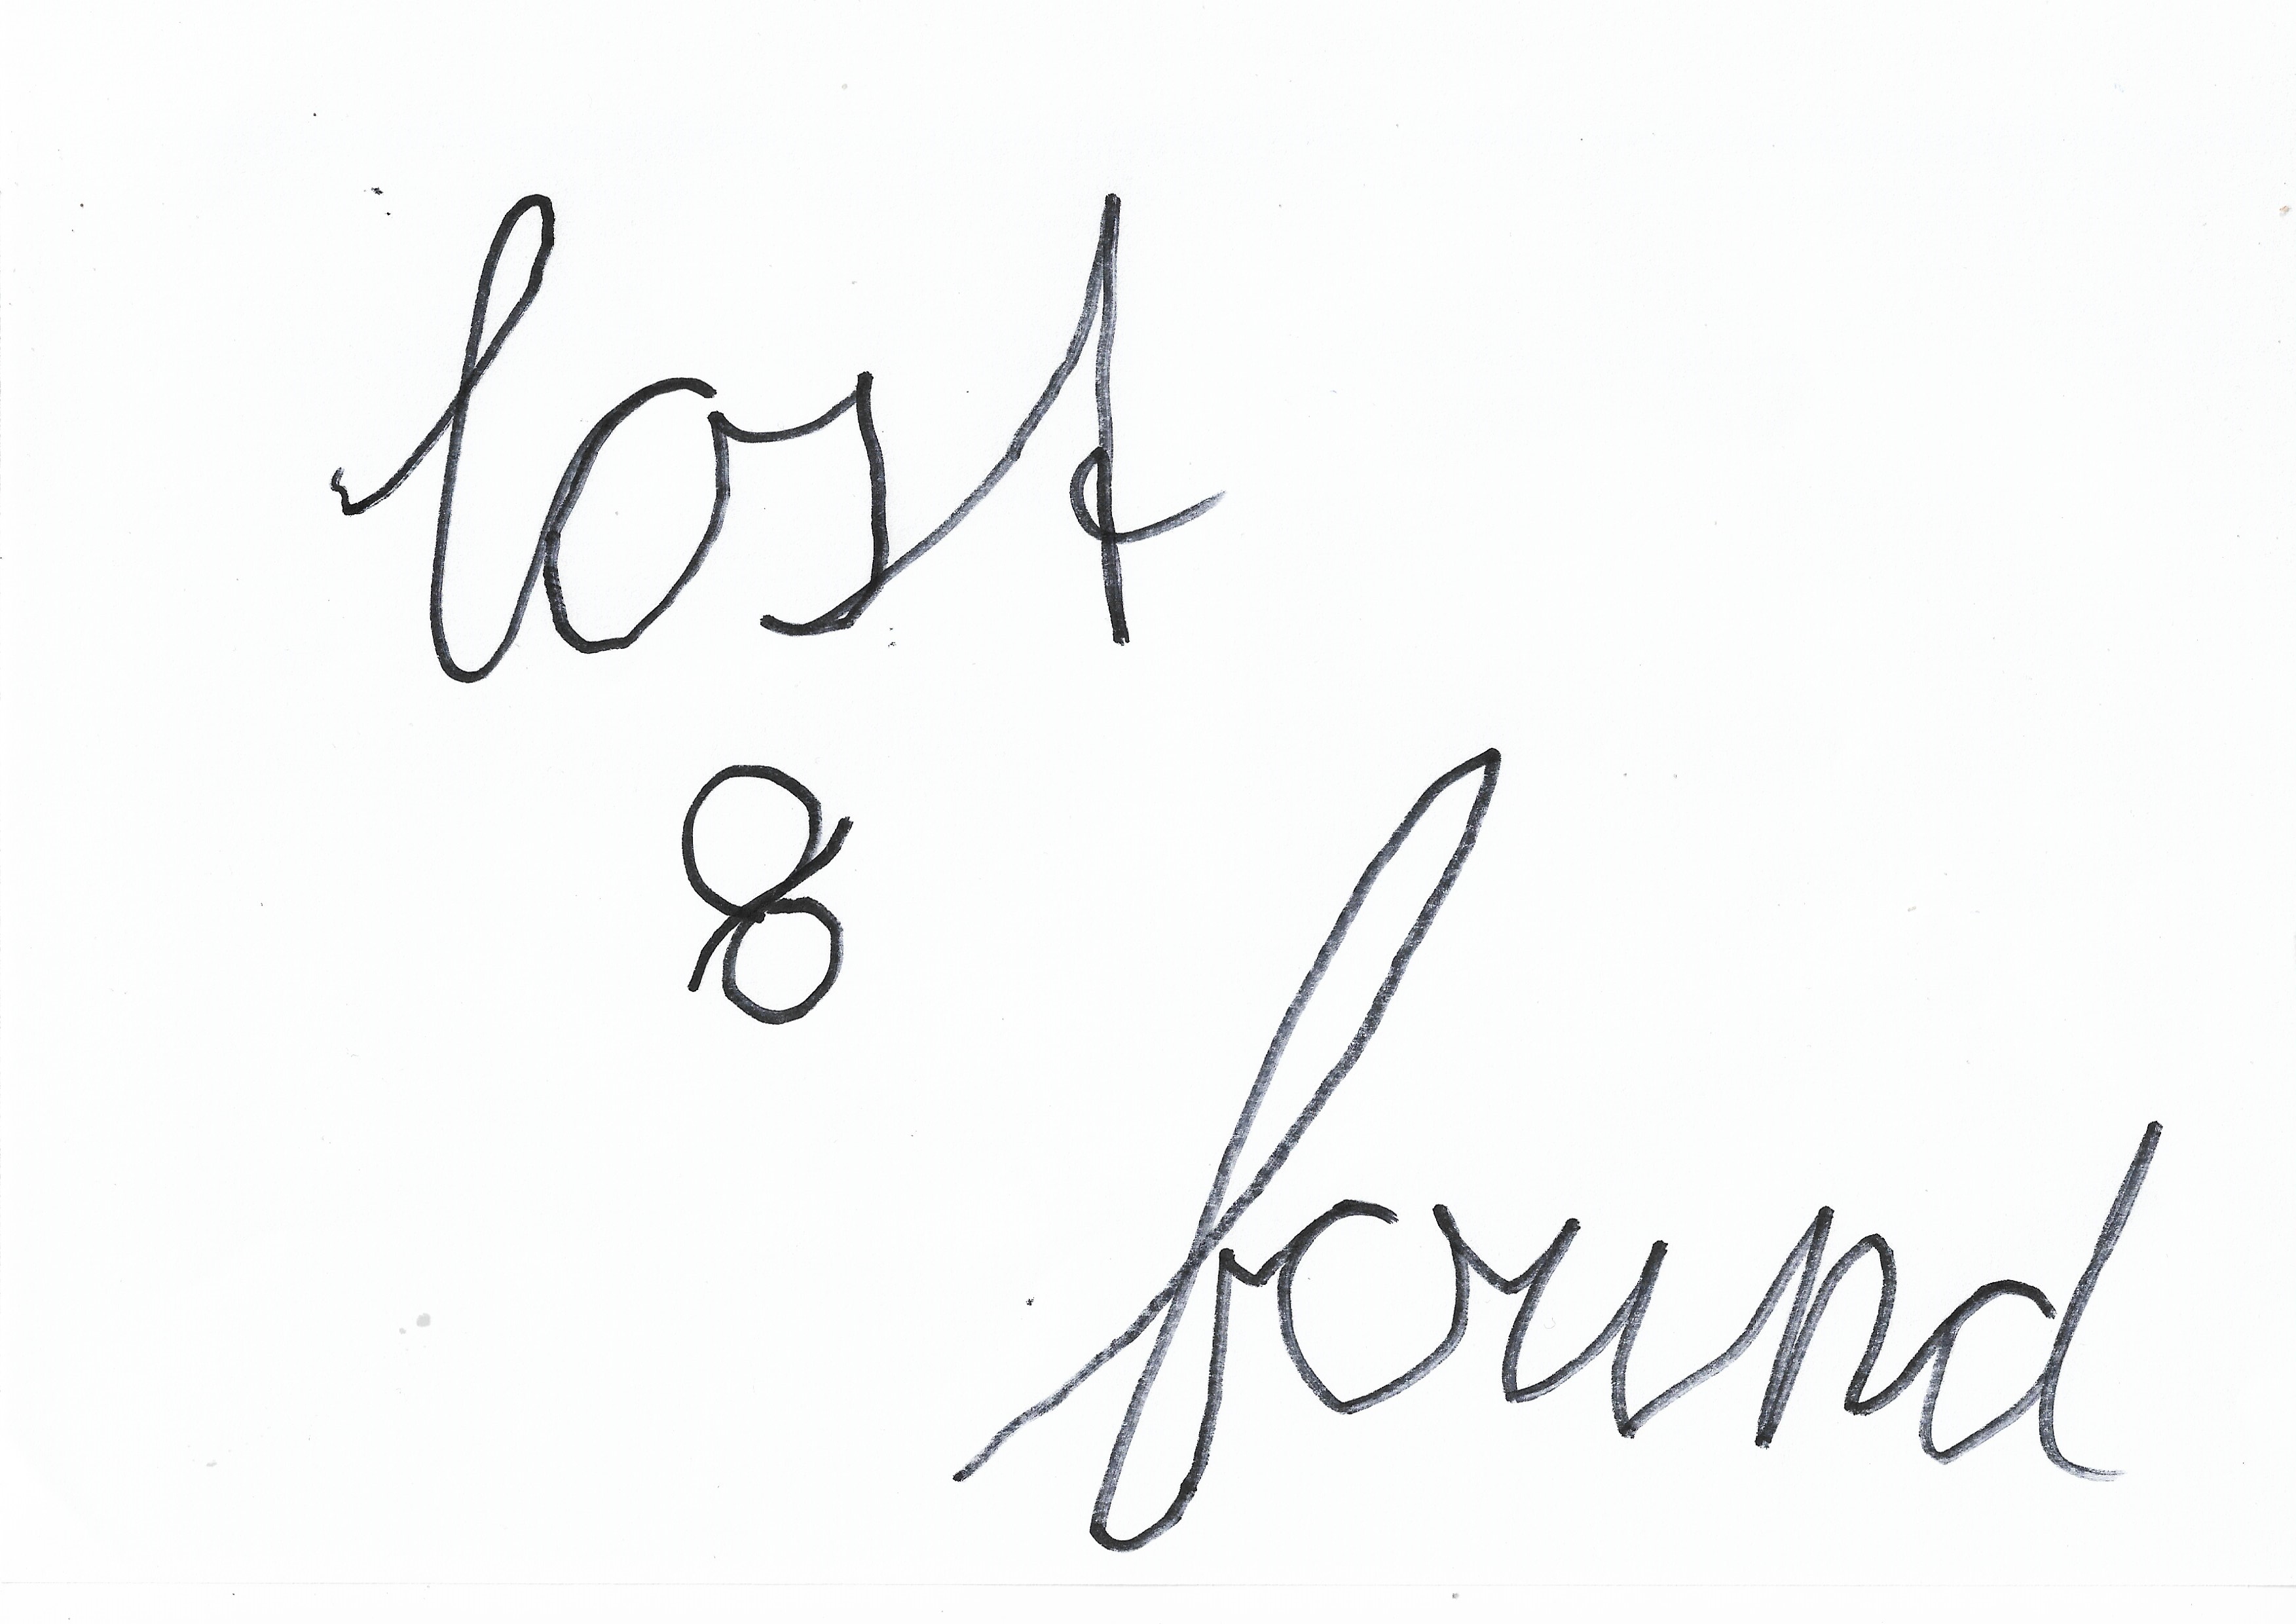 lost
&
found